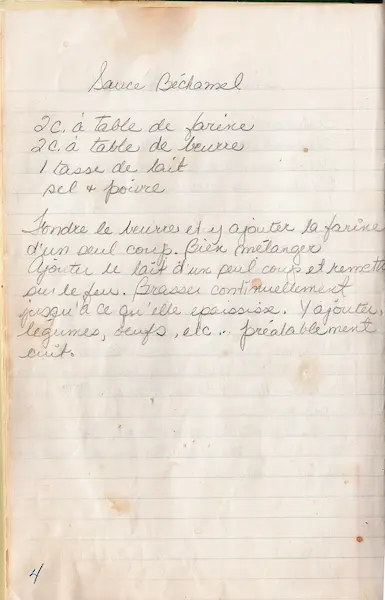 Sauce Béchamel
2 c. à table de farine
2 c. à table de beurre
1 tasse de lait
sel + poivre
Fondre le beurre et y ajouter la farine
d'un seul coup. Bien mélanger
Ajouter le lait d'un seul coup et remettre
sur le feu. Brasser continuellement
jusqu'à ce qu'elle épaississe. Y ajouter,
légumes, oeufs, etc... préalablement
cuit.
4